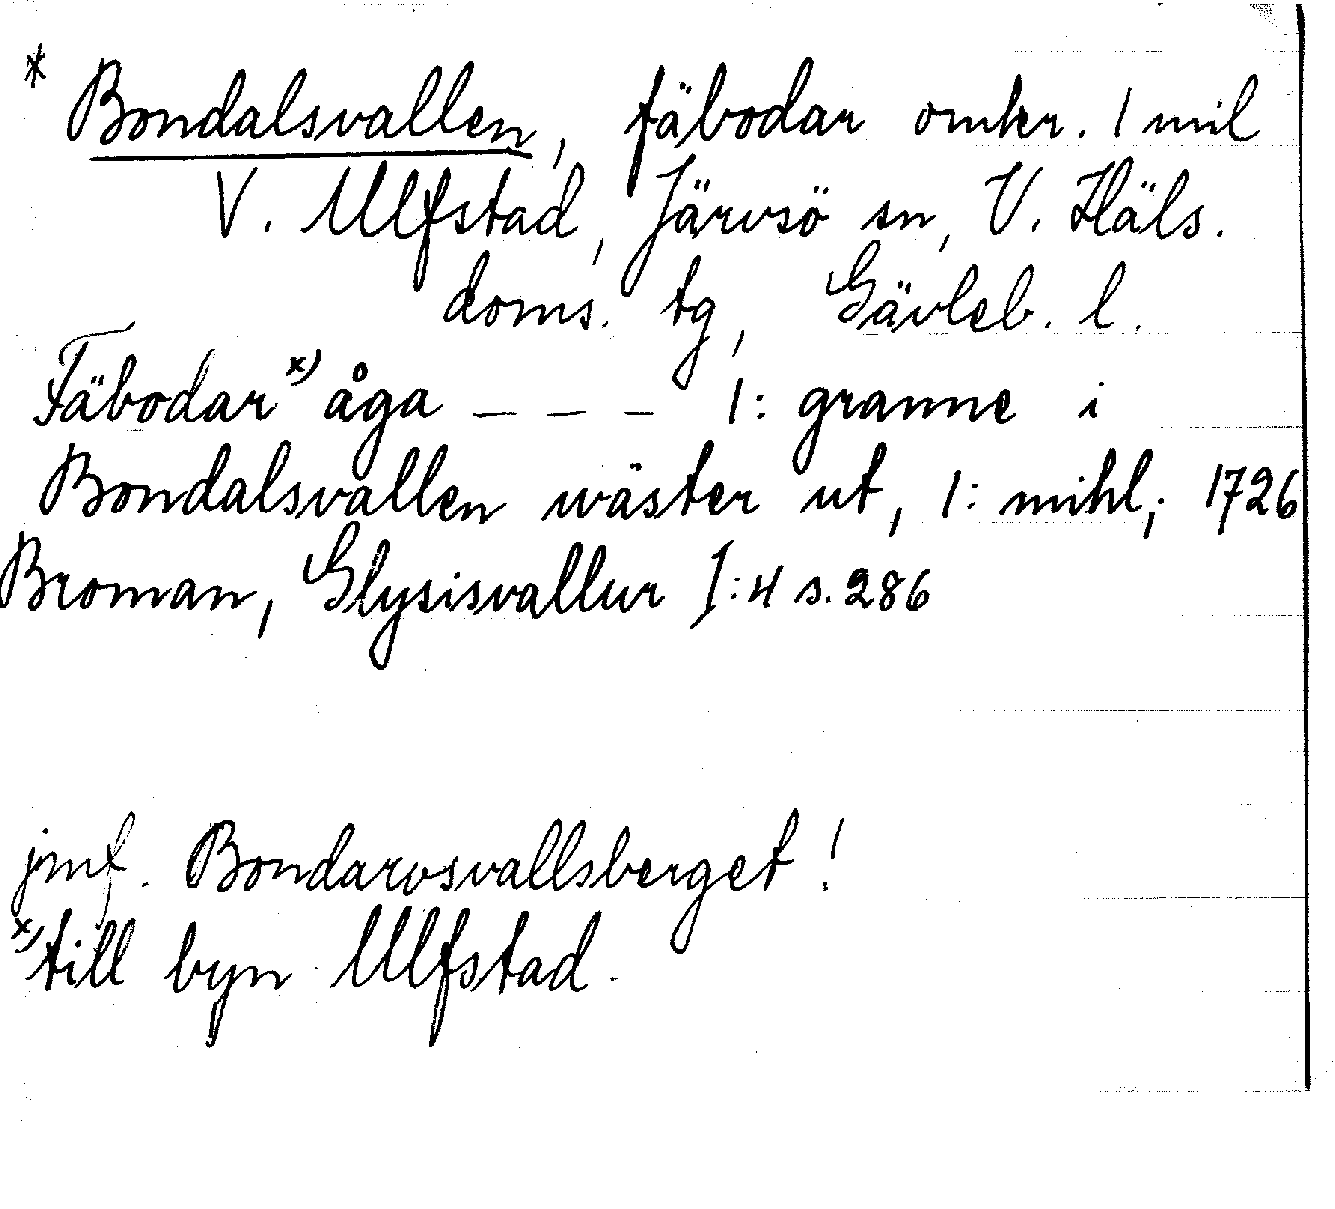 * Bondalsvallen, fäbodar omkr. 1 mil
V. Ulfstad, Järvsö sn, V. Häls.
doms. tg, Gävleb. l.
Fäbodar x) åga _ _ _ 1: granne i
Bondalsvallen wäster ut, 1: mihl; 1726
Broman, Glysisvallur I:4 s. 286
jmf. Bondarvsvallsberget!
x) till byn Ulfstad.